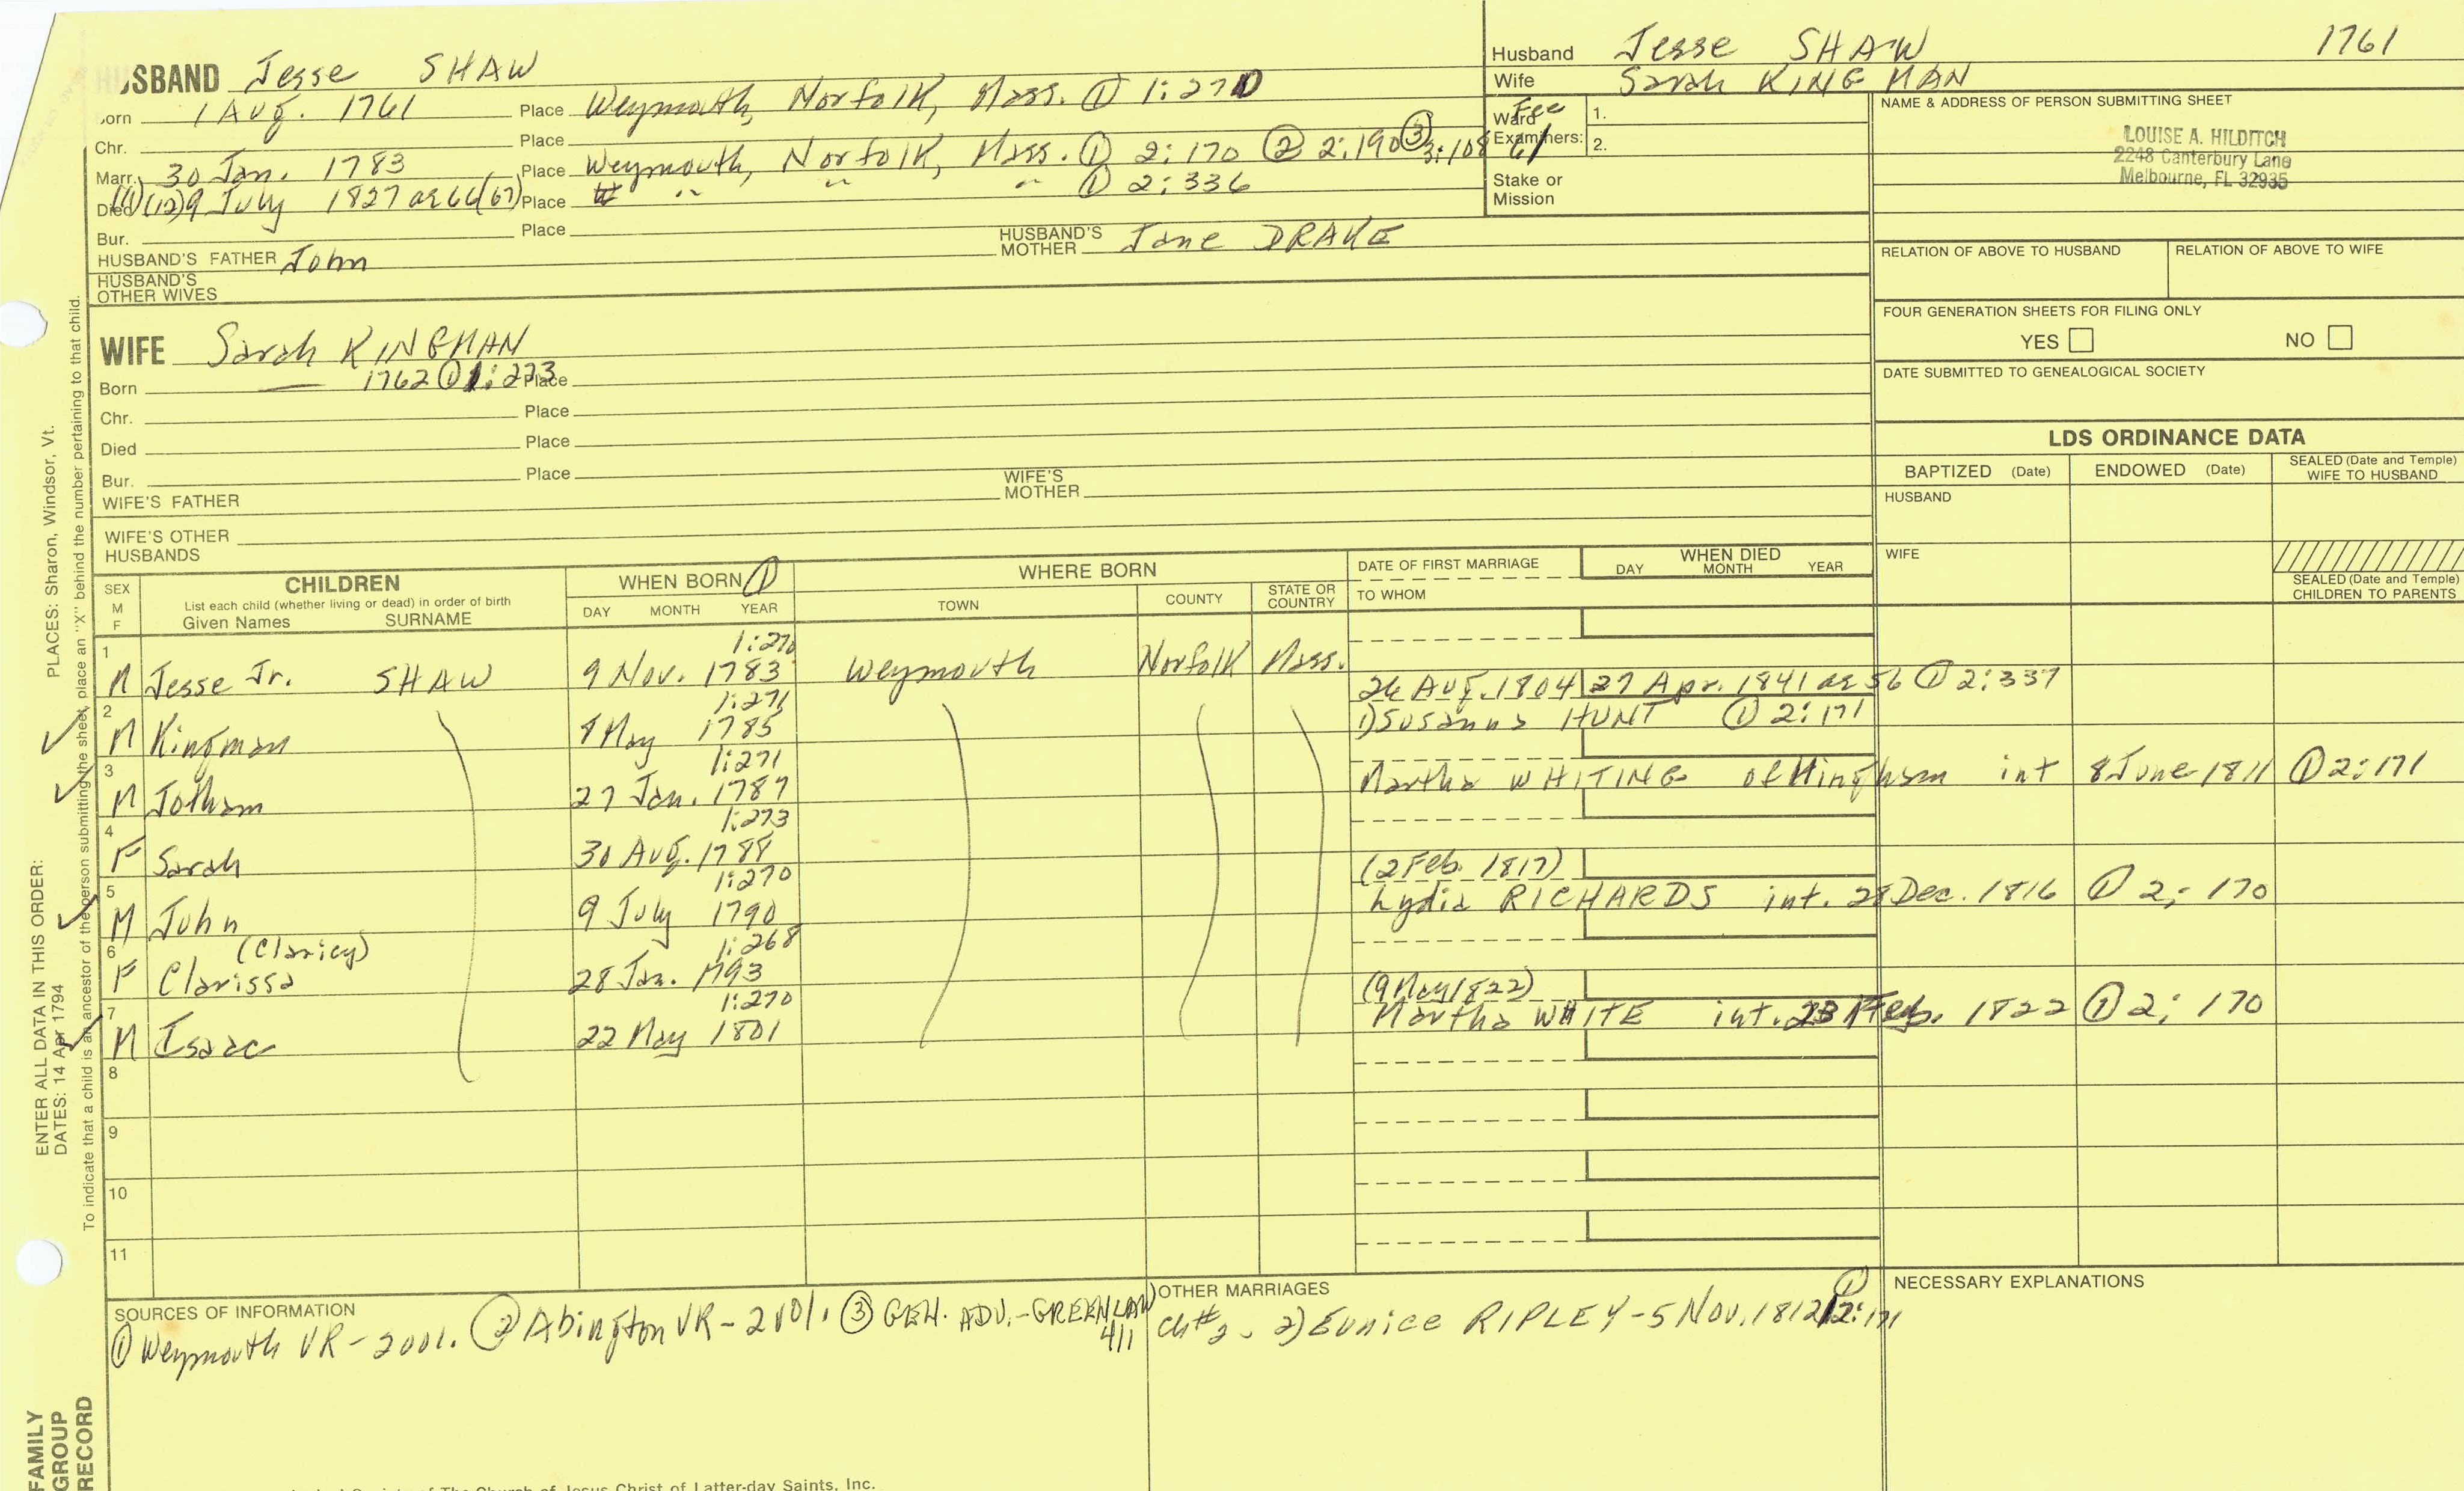 HUSBAND Jesse SHAW
Born 1 Aug. 1761 Place Weymouth, Norfolk, Mass. ① 1:270
Chr. Place
Marr. 30 Jan. 1783 Place Weymouth, Norfolk, Mass. ① 2:170 ② 2:190 ③ 3:108
Died 9 July 1827 ae 66 (67) Place " " " ① 2:336
Bur. Place
HUSBAND'S FATHER John HUSBAND'S MOTHER Jane DRAKE
HUSBAND'S OTHER WIVES
Husband Jesse SHAW 1761
Wife Sarah KINGMAN
Ward 1.
Examiners: 2.
Stake or Mission
NAME & ADDRESS OF PERSON SUBMITTING SHEET
LOUISE A. HILDITCH
2248 Canterbury Lane
Melbourne, FL 32935
RELATION OF ABOVE TO HUSBAND RELATION OF ABOVE TO WIFE
FOUR GENERATION SHEETS FOR FILING ONLY
YES NO
DATE SUBMITTED TO GENEALOGICAL SOCIETY
WIFE Sarah KINGMAN
Born — 1762 ① 1:273 Place
Chr. Place
Died Place
Bur. Place
WIFE'S FATHER WIFE'S MOTHER
WIFE'S OTHER HUSBANDS
LDS ORDINANCE DATA
BAPTIZED (Date) ENDOWED (Date) SEALED (Date and Temple) WIFE TO HUSBAND
HUSBAND
WIFE
SEALED (Date and Temple) CHILDREN TO PARENTS
SEX M F
CHILDREN
List each child (whether living or dead) in order of birth
Given Names SURNAME
WHEN BORN ①
DAY MONTH YEAR
WHERE BORN
TOWN COUNTY STATE OR COUNTRY
DATE OF FIRST MARRIAGE
TO WHOM
WHEN DIED
DAY MONTH YEAR
1 1:270
M Jesse Jr. SHAW 9 Nov. 1783 Weymouth Norfolk Mass.
26 Aug. 1804 27 Apr. 1841 ae 56 ① 2:337
2 1:271 1) Susanna HUNT ① 2:171
M Kingman 8 May 1785
3 1:271 Martha WHITING of Hingham int 8 June 1811 ① 2:171
M Jotham 27 Jan. 1787
4 1:273
F Sarah 30 Aug. 1788 (2 Feb. 1817)
5 1:270 Lydia RICHARDS int. 28 Dec. 1816 ① 2:170
M John 9 July 1790
6 (Claricy) 1:268
F Clarissa 28 Jan. 1793 (9 May 1822)
7 1:270 Martha WHITE int. Feb. 1822 ① 2:170
M Isaac 22 May 1801
8
9
10
11
SOURCES OF INFORMATION
① Weymouth VR - 2001. ② Abington VR - 2101. ③ GEN. ADV. - GREENLAW 4/1
OTHER MARRIAGES
Ch#2 - 2) Eunice RIPLEY - 5 Nov. 1812 ① 2:171
NECESSARY EXPLANATIONS
ENTER ALL DATA IN THIS ORDER: PLACES: Sharon, Windsor, Vt.
DATES: 14 Apr 1794
To indicate that a child is an ancestor of the person submitting the sheet, place an "X" behind the number pertaining to that child.
FAMILY
GROUP
RECORD
of The Church of Jesus Christ of Latter-day Saints, Inc.